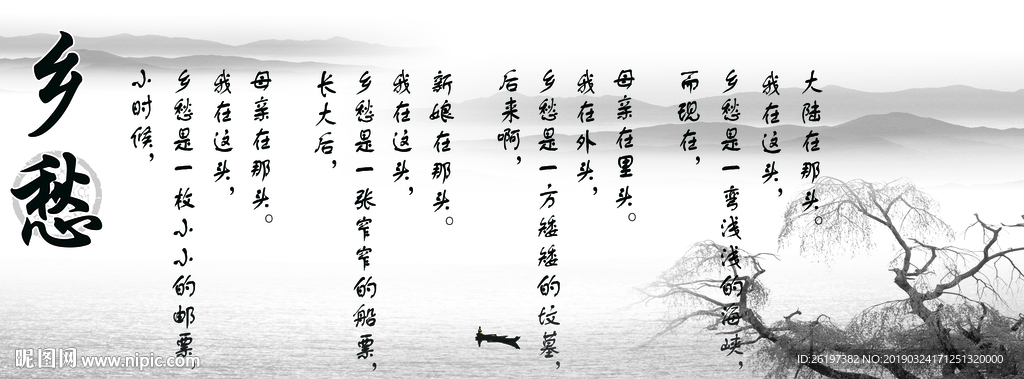 乡愁
小时候，
乡愁是一枚小小的邮票，
我在这头，
母亲在那头。
长大后，
乡愁是一张窄窄的船票，
我在这头，
新娘在那头。
后来啊，
乡愁是一方矮矮的坟墓，
我在外头，
母亲在里头。
而现在，
乡愁是一弯浅浅的海峡，
我在这头，
大陆在那头。
昵图网 www.nipic.com
ID:26197382 NO:20190324171251320000